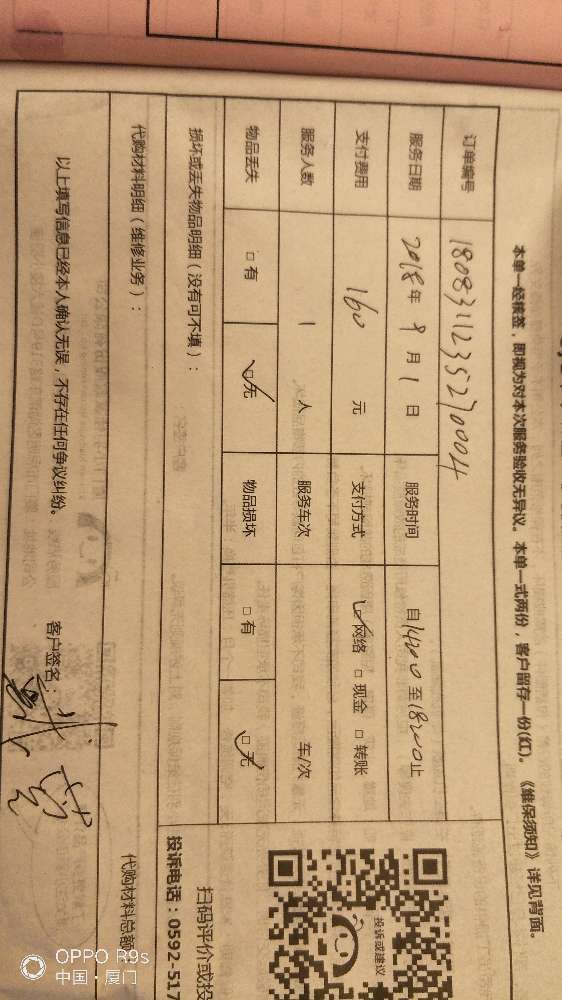 本单一经核签，即视为对本次服务验收无异议。本单一式两份，客户留存一份(红)。《维保须知》详见背面。
订单编号 1808311235270004
服务日期 2018年9月1日 服务时间 自14:00至18:00止
支付费用 160 元 支付方式 ☑网络 □现金 □转账
服务人数 1 人 服务车次 车/次
物品丢失 □有 ☑无 物品损坏 □有 ☑无
损坏或丢失物品明细（没有可不填）：
代购材料明细（维修业务）： 代购材料总额
以上填写信息已经本人确认无误，不存在任何争议纠纷。 客户签名：
投诉或建议
扫码评价或投
投诉电话：0592-517
OPPO R9s
中国·厦门